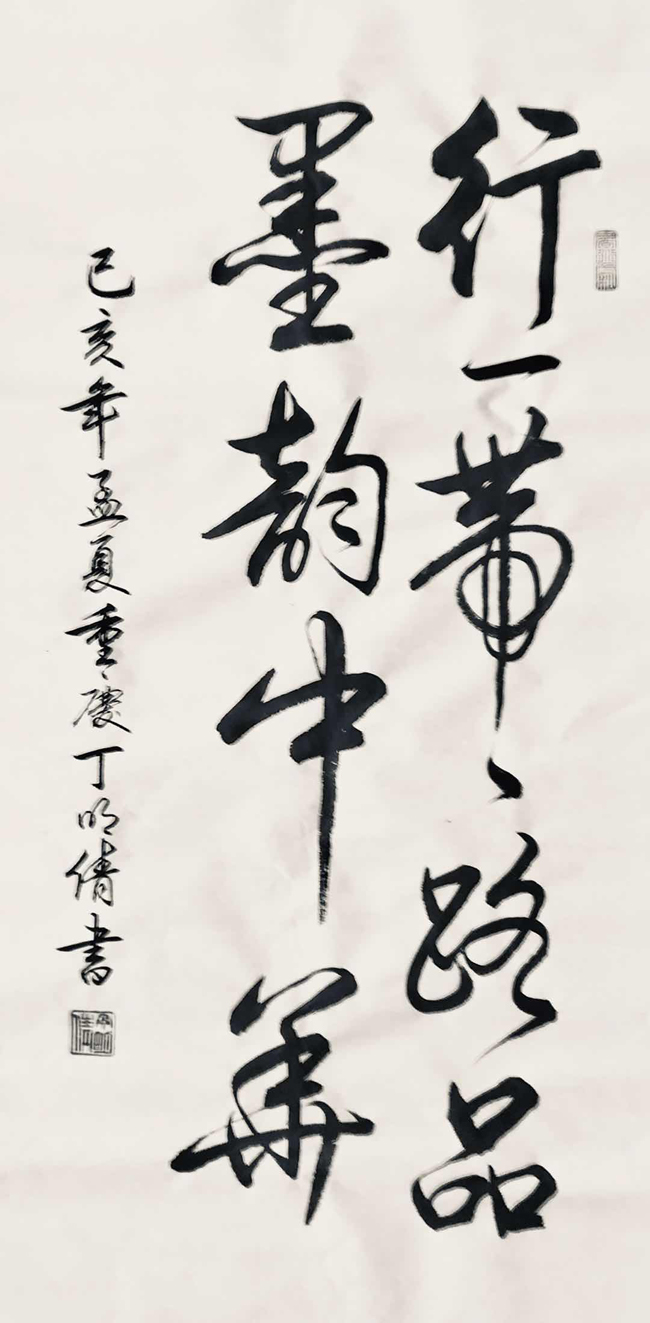 行一帶一路品
墨韵中華
己亥年孟夏重慶丁明倩書